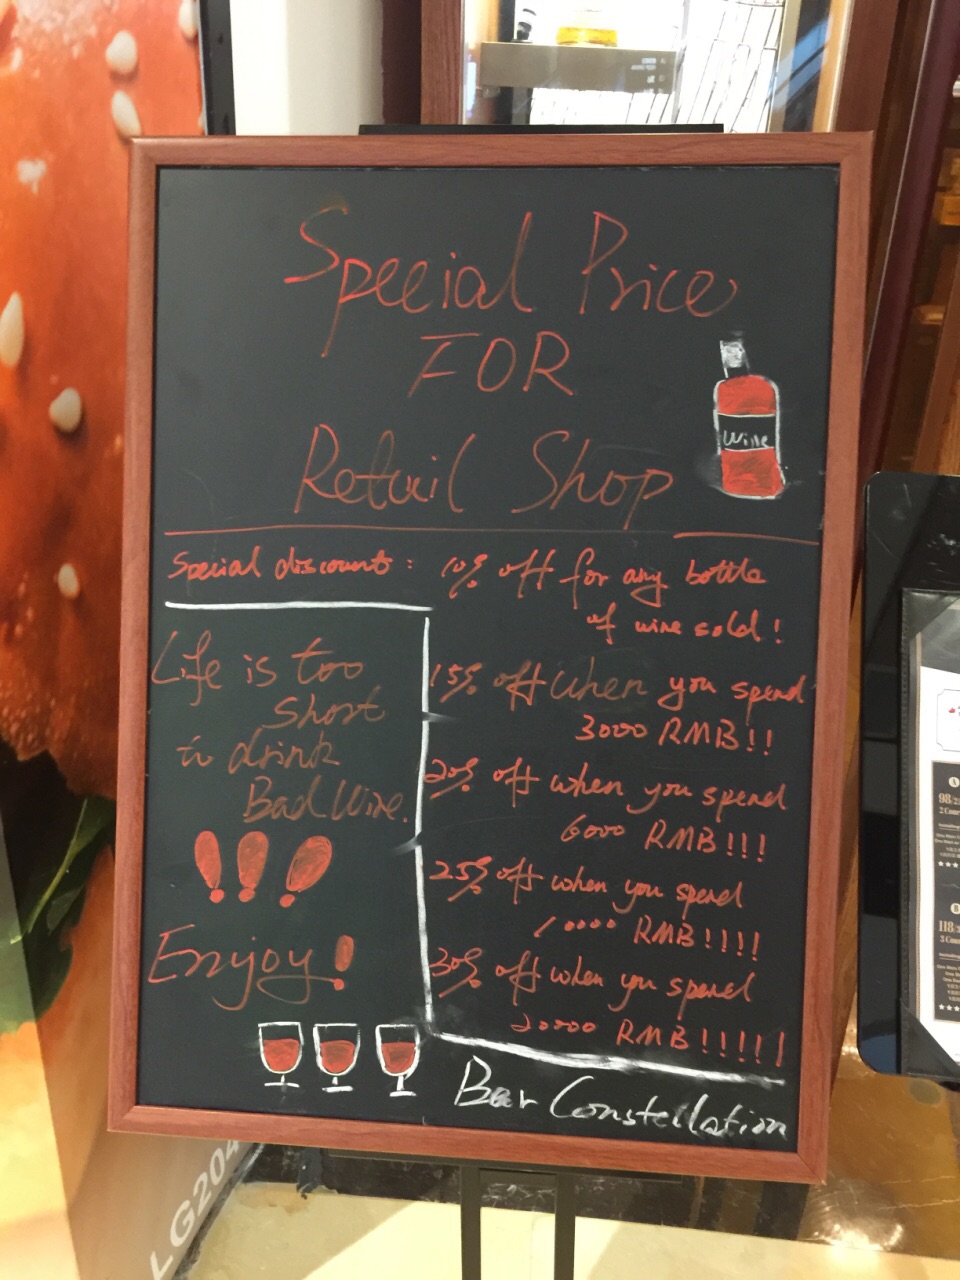 Special Price
FOR
Retail Shop
Wine
Special discounts : 10% off for any bottle
of wine sold !
15% off when you spend
3000 RMB!!
20% off when you spend
6000 RMB!!!
25% off when you spend
10000 RMB!!!!
30% off when you spend
20000 RMB!!!!!
Life is too
short
to drink
Bad Wine.
!!!
Enjoy!
Bar Constellation
LG204